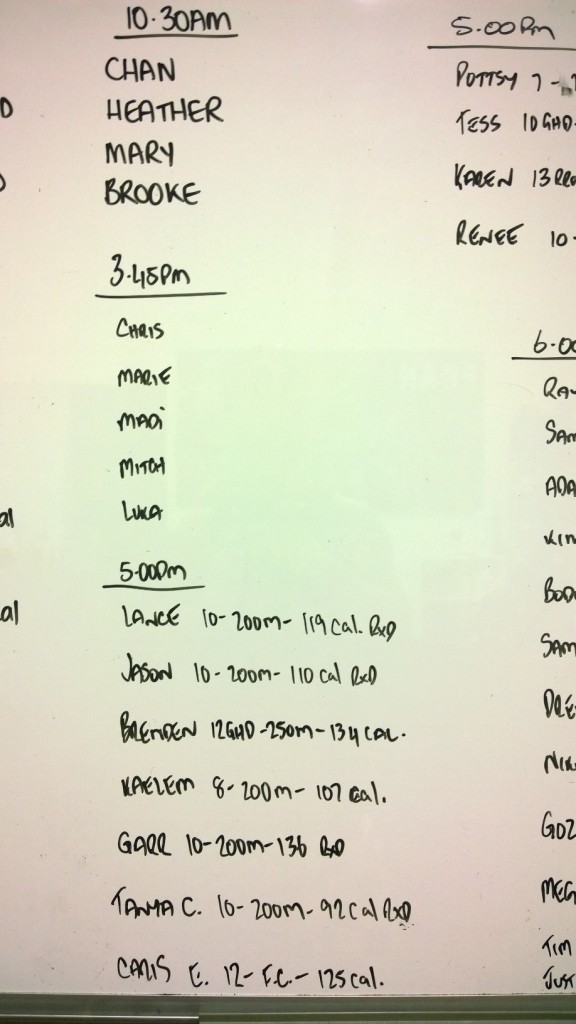 10.30AM
CHAN
HEATHER
MARY
BROOKE
3.45PM
CHRIS
MARIE
MADi
MITCH
LUKA
5.00PM
LANCE 10-200m-119 Cal. RxD
JASON 10-200m-110 Cal RxD
BRENDEN 12GHD-250m-134 CAL.
KAELEM 8-200m-107 Cal.
GARR 10-200m-136 RxD
TANYA C. 10-200m-92 Cal RxD
CHRIS E. 12-F.C.-125 Cal.
5.00Pm
POTTSY 7-
TESS 10 GHD-
KAREN 13
RENEE 10-
6.00
RAY
SAM
ADA
KIN
BOD
SAM
DRE
NIK
GOZ
MEG
TIM
JUST
al
al